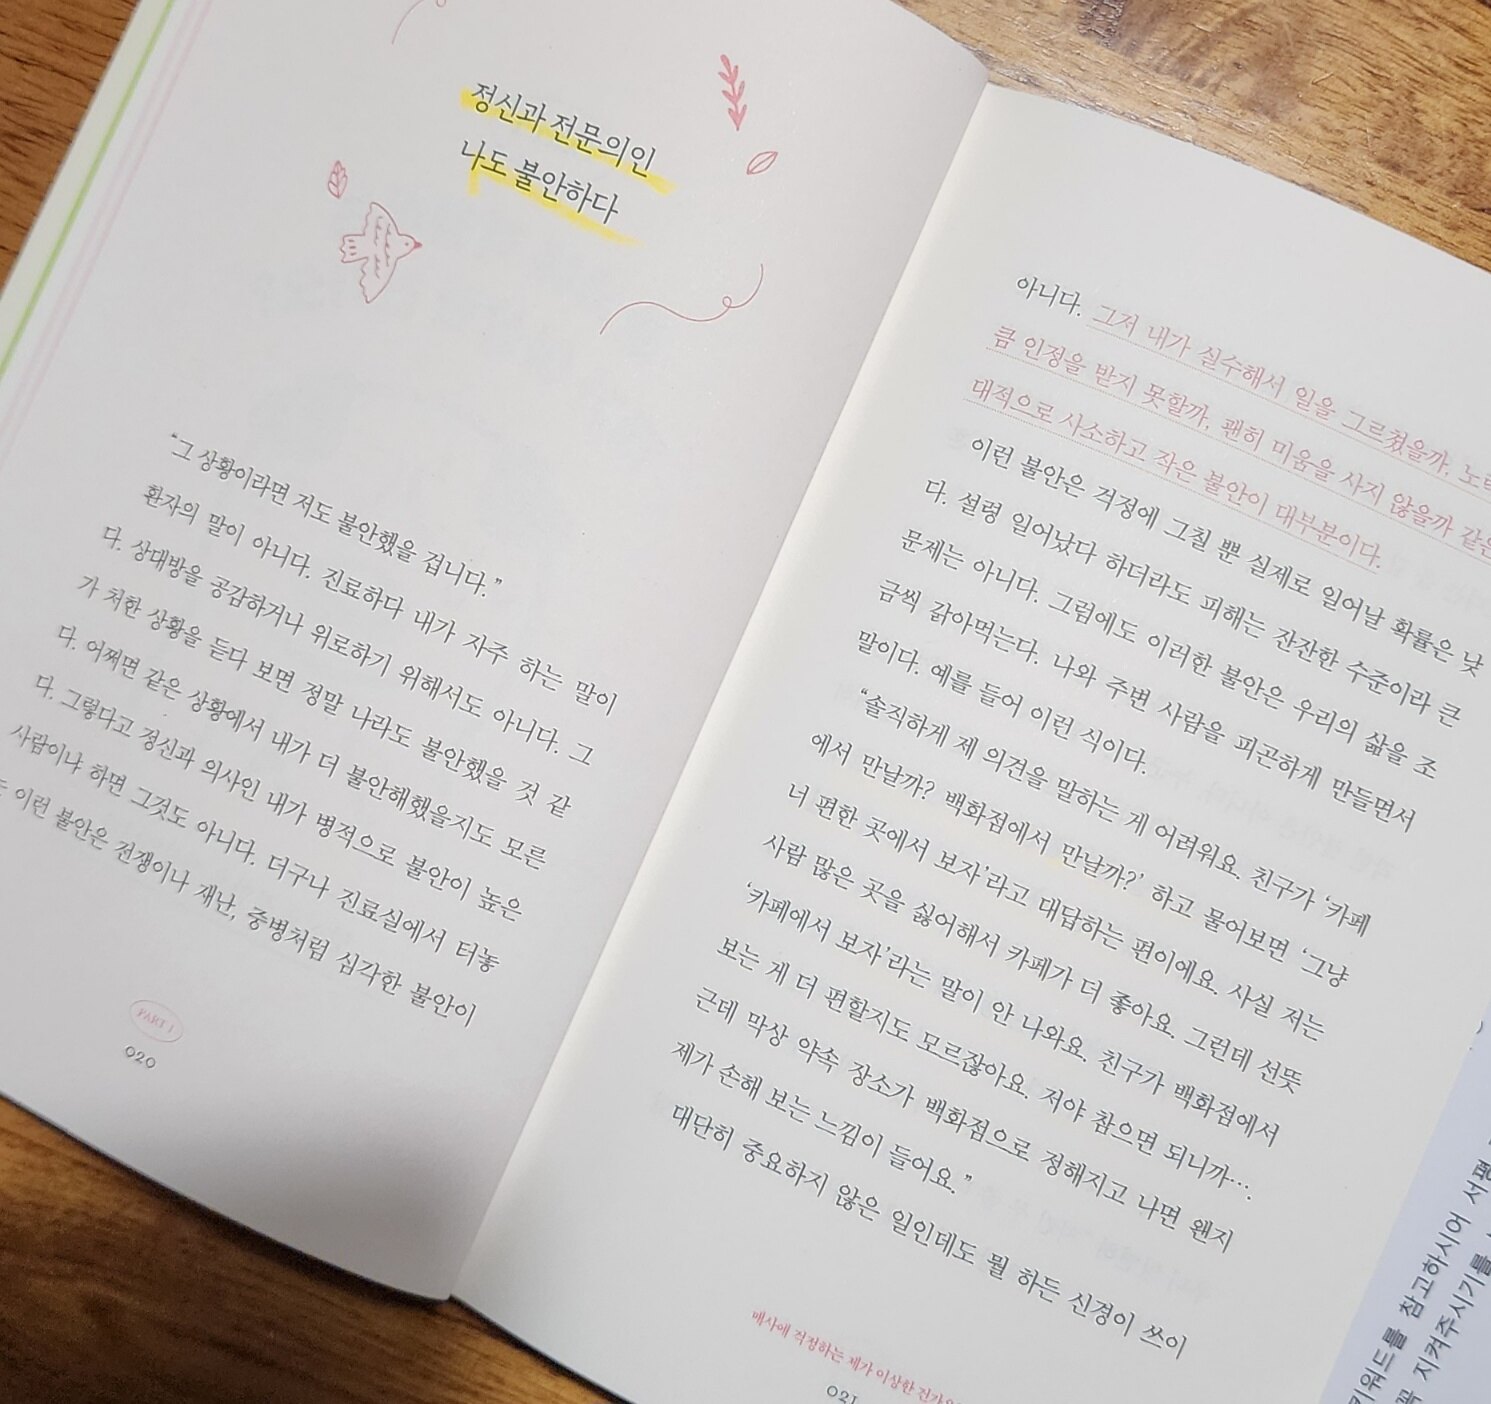 정신과 전문의인
나도 불안하다
“그 상황이라면 저도 불안했을 겁니다.”
환자의 말이 아니다. 진료하다 내가 자주 하는 말이
다. 상대방을 공감하거나 위로하기 위해서도 아니다. 그
가 처한 상황을 듣다 보면 정말 나라도 불안했을 것 같
다. 어쩌면 같은 상황에서 내가 더 불안해했을지도 모른
다. 그렇다고 정신과 의사인 내가 병적으로 불안이 높은
사람이냐 하면 그것도 아니다. 더구나 진료실에서 터놓
는 이런 불안은 전쟁이나 재난, 중병처럼 심각한 불안이
PART 1
020
아니다. 그저 내가 실수해서 일을 그르쳤을까, 노력
큼 인정을 받지 못할까, 괜히 미움을 사지 않을까 같은
대적으로 사소하고 작은 불안이 대부분이다.
이런 불안은 걱정에 그칠 뿐 실제로 일어날 확률은 낮
다. 설령 일어났다 하더라도 피해는 잔잔한 수준이라 큰
문제는 아니다. 그럼에도 이러한 불안은 우리의 삶을 조
금씩 갉아먹는다. 나와 주변 사람을 피곤하게 만들면서
말이다. 예를 들어 이런 식이다.
“솔직하게 제 의견을 말하는 게 어려워요. 친구가 ‘카페
에서 만날까? 백화점에서 만날까?’ 하고 물어보면 ‘그냥
너 편한 곳에서 보자’라고 대답하는 편이에요. 사실 저는
사람 많은 곳을 싫어해서 카페가 더 좋아요. 그런데 선뜻
‘카페에서 보자’라는 말이 안 나와요. 친구가 백화점에서
보는 게 더 편할지도 모르잖아요. 저야 참으면 되니까….
근데 막상 약속 장소가 백화점으로 정해지고 나면 왠지
제가 손해 보는 느낌이 들어요.”
대단히 중요하지 않은 일인데도 뭘 하든 신경이 쓰이
매사에 걱정하는 제가 이상한 건가요
021
키워드를 참고하시어 서평
꼭 지켜주시기를